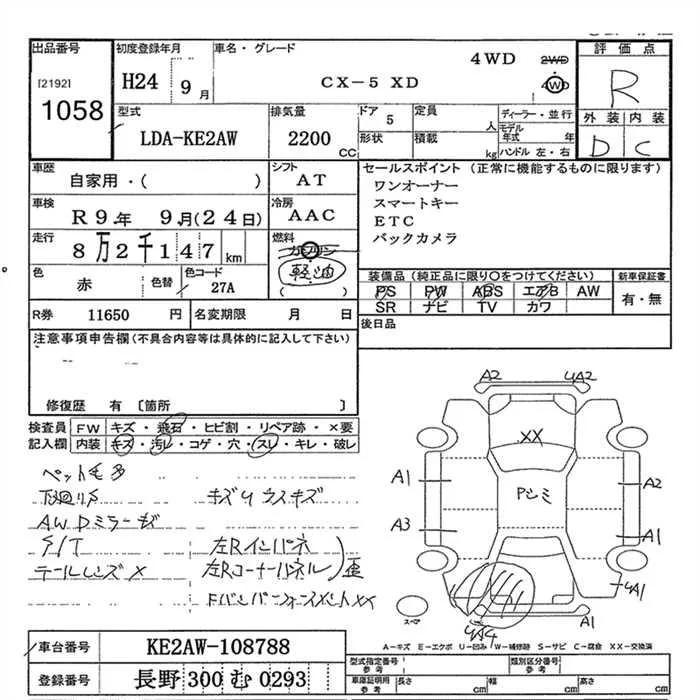 出品番号
[2192]
1058
初度登録年月
H24 9月
車名・グレード
CX-5 XD
4WD
2WD
4WD
評価点
R
外装 内装
D C
型式
LDA-KE2AW
排気量
2200 CC
ドア 5
形状
定員 人
積載 kg
ディーラー・並行
モデル年式 年
ハンドル 左・右
車歴
自家用・( )
シフト
AT
車検
R9年 9月(24日)
冷房
AAC
走行
8万2千147km
燃料
ガソリン
軽油
( )
色
赤
色替
色コード
27A
R券 11650 円
名変期限 月 日
セールスポイント(正常に機能するものに限ります)
ワンオーナー
スマートキー
ETC
バックカメラ
装備品(純正品に限り○をつけてください)
PS PW ABS エアB AW
SR ナビ TV カワ
新車保証書
有・無
後日品
注意事項申告欄(不具合内容等は具体的に記入して下さい)
修復歴 有 〔箇所 〕
検査員記入欄
FW キズ・飛石・ヒビ割・リペア跡・×要
内装 キズ・汚レ・コゲ・穴・スレ・キレ・破レ
ペット毛多
下廻りサ
キズUウスキズ
AW Dミラーキズ
S/T
テールレンズX
左Rインパネ
左Rコーナーパネル
歪
A2
4A2
XX
A1
A2
Pシミ
A3
A1
4A1
A1
4A4
スペア
A-キズ E-エクボ U-凹み W-補修跡 S-サビ C-腐食 XX-交換済
車台番号
KE2AW-108788
登録番号
長野 300 む 0293
型式指定番号
参考
類別区分番号
参考
車庫証明用
参考
長さ cm
幅 cm
高さ cm